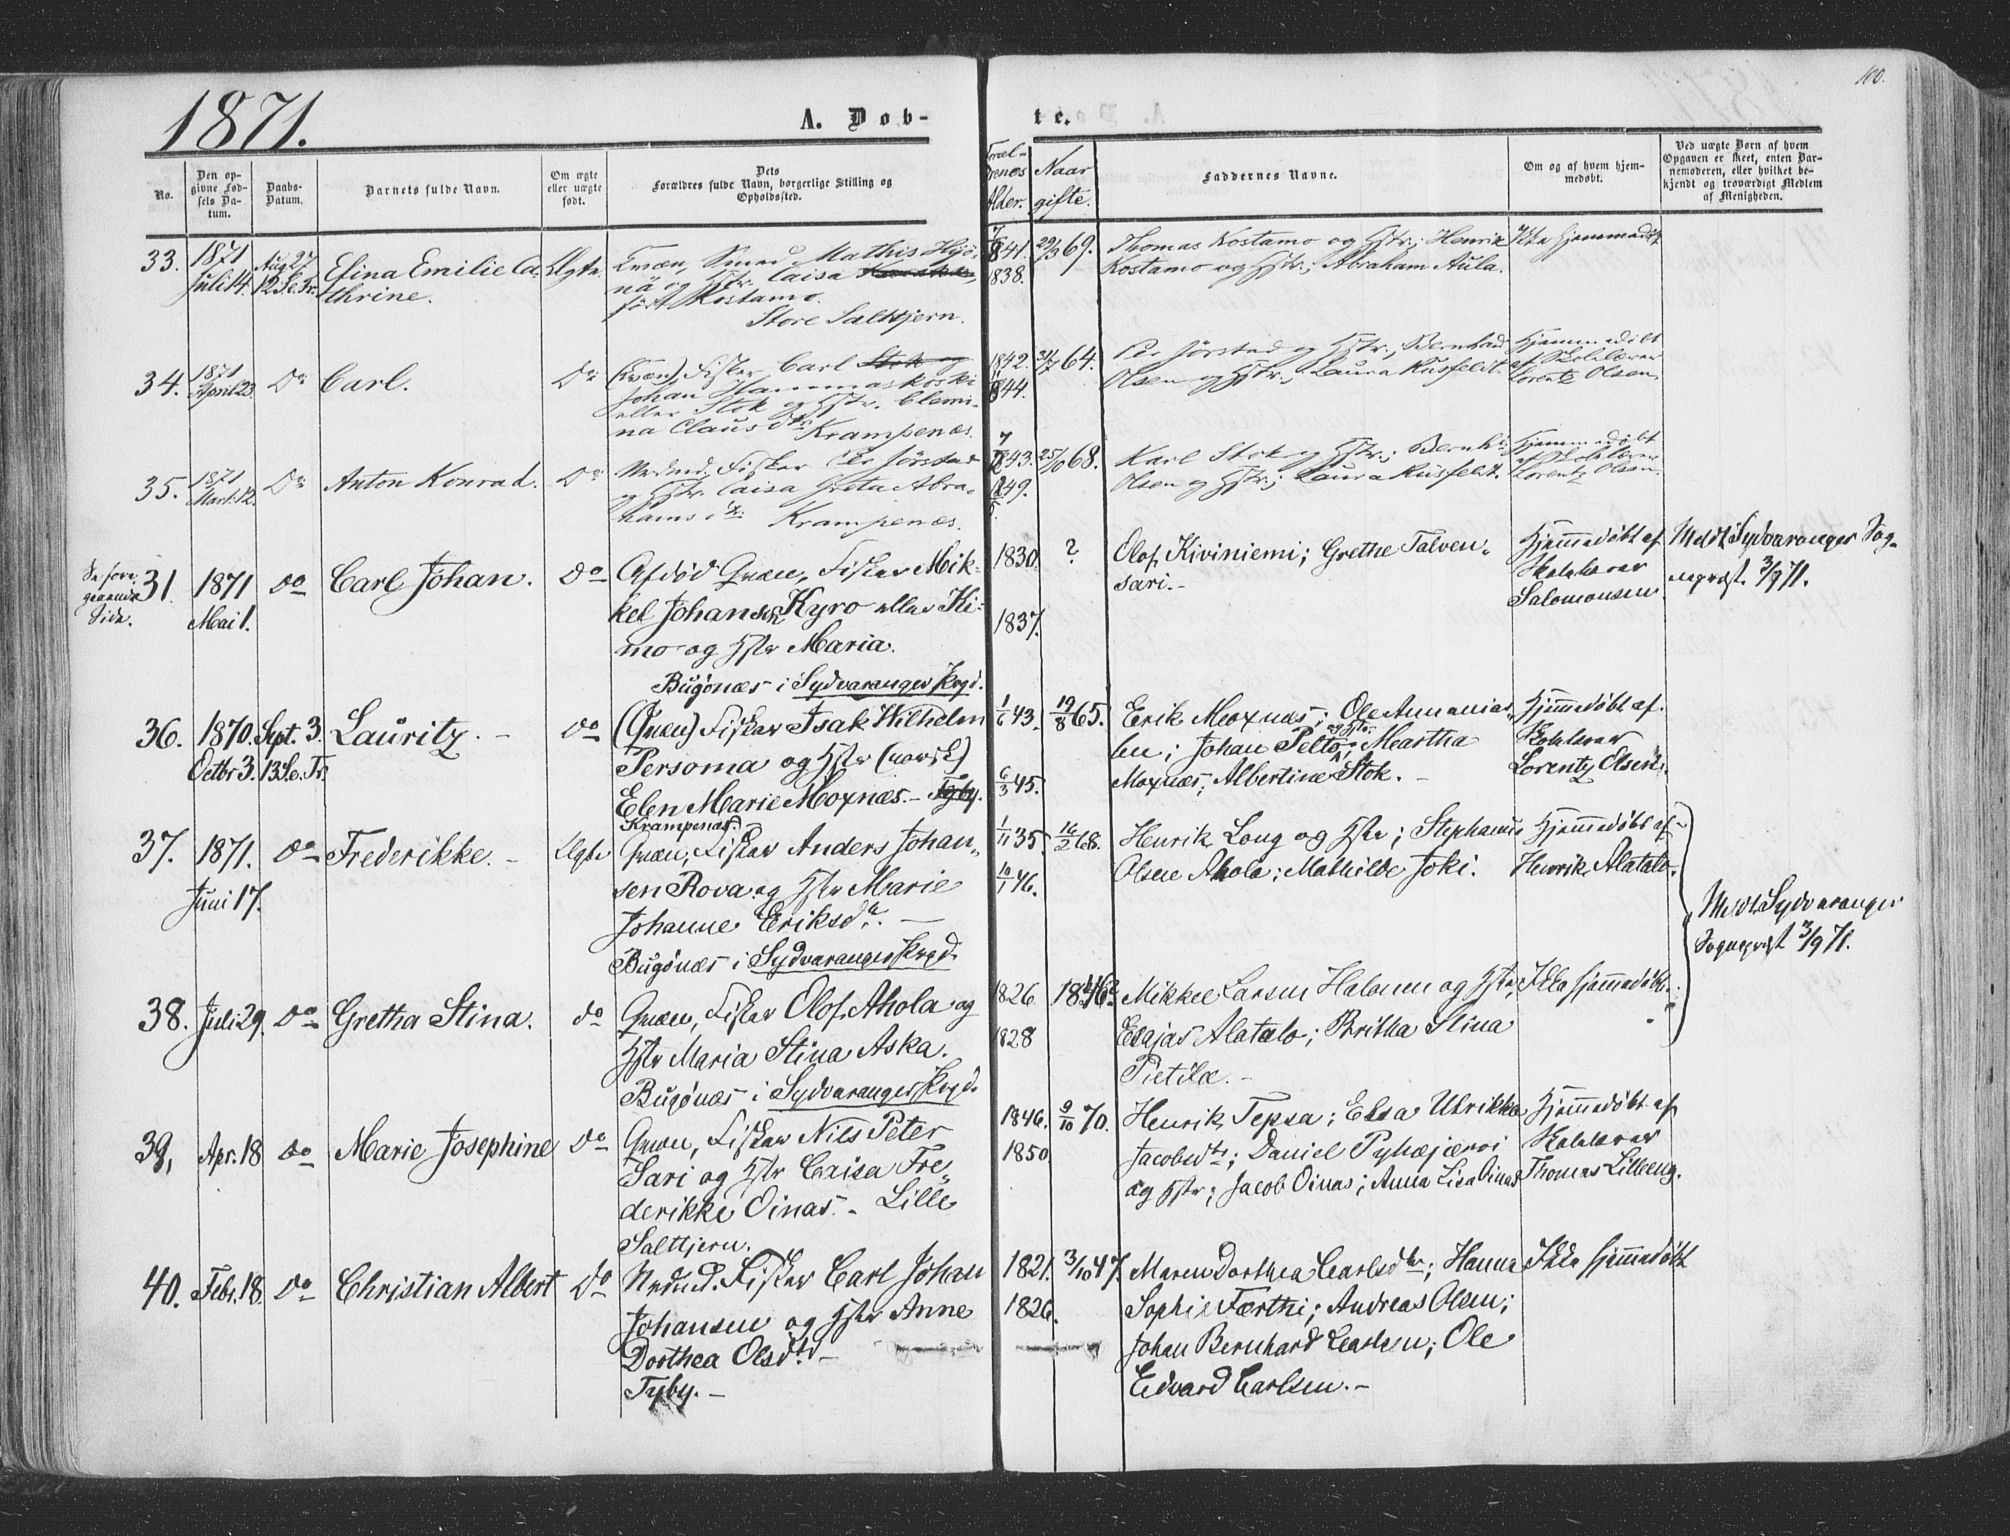 100.
1871.
A. Døb-
te.
No.
Den op-
givne Fød-
sels Da-
tum.
Daabs-
Datum.
Barnets fulde Navn.
Om ægte
eller uægte
født.
Dets
Forældres fulde Navn, borgerlige Stilling og
Opholdssted.
Foræl-
drenes
Alder.
Naar
gifte.
Faddernes Navne.
Om og af hvem hjem-
medøbt.
Ved uægte Børn af hvem
Opgaven er skeet, enten Bar-
nemoderen, eller hvilket be-
kjendt og troværdigt Medlem
af Menigheden.
33.
1871
Juli 14.
Aug 27
12 S. e. Tr.
Elina Emilie Ca-
thrine.
Ugte.
Kvæn, Smed Mathis Hjö-
nä og Hstr. Caisa
født Kostamo.
Store Saltjern.
1841.
1838.
29/3 69.
Thomas Kostamo og Hstr.; Henrik
Kostamo og Hstr.; Abraham Aula.
Ikke hjemmedøbt
34.
1871
April 23.
Do
Carl.
Do
(Kvæn) Fisker Carl Stok og
Johan Hammaskoski
eller Stok og Hstr. Clemi-
na Clausdtr
Krampenæs.
1842.
1844.
64.
Per Jörstad og Hstr.; Bernhard
Olsen og Hstr.; Laura Rusfeldt.
Hjemmedöbt
af Skolelærer
Lorentz Olsen.
35.
1871
Mart. 12.
Do
Anton Konrad.
Do
Nrdmd. Fisker Per Jörstad
og Hstr Caisa Greta Abra-
hamsdtr. Krampenæs.
1843.
1849.
25/10 68.
Karl Stok og Hstr.; Bernh.
Olsen og Hstr.; Laura Rusfeldt.
Hjemmedøbt
af Skolelærer
Lorentz Olsen.
Se fore-
gaaende
Side.
31.
1871
Mai 1.
do
Carl Johan.
do
Afdöd Qvæn, Fisker Mik-
kel Johansen Kyro eller Ki-
mo og Hstr Maria.
Bugönæs i Sydvaranger Prgd.
1830.
1837.
?
Olof Kiviniemi; Grethe Talven-
sari.-
Hjemmedøbt af
Skolelærer
Salomonsen
Meldt Sydvaranger Sog-
neprst. 3/9 71.
36.
1870.
Octbr 3.
Sept. 3.
13 S. e. Tr.
Lauritz. -
do
(Qvæn) Fisker Isak Wilhelm
Persoma og Hstr (norsk)
Elen Marie Moxnæs.- Tyby.
Krampenæs.
1/6 43.
6/3 45.
19/8 65.
Erik Moxnæs; Ole Annanias-
sen; Johan Pelto og Hstr. Meartha
Moxnæs; Albertine Stok. -
Hjemmedøbt af
Skolelærer
Lorentz Olsen.
37.
1871.
Juni 17.
do
Frederikke. -
Ugte
Qvæn, Fisker Anders Johan-
sen Rova og Hstr Marie
Johanne Eriksdtr. -
Bugönæs i Sydvaranger Prgd.
1/11 35.
10/1 46.
16/2 68.
Henrik Long og Hstr; Stephanus
Olsen Ahola; Mathilde Joki.
Hjemmedøbt af
Henrik Alatalo.
Meldt Sydvaranger
Sogneprst 3/9 71.
38.
Juli 29.
do
Gretha Stina.
do
Qvæn, Fisker Olof Ahola og
Hstr Maria Stina Aska.
Bugönæs i Sydvaranger Prgd.
1826
1828
1846?
Mikkel Larsen Halonen og Hstr;
Esajas Alatalo; Britha Stina
Pietilæ. -
Ikke hjemmedøbt.
39.
Apr. 18
do
Marie Josephine
do
Qvæn, Fisker Nils Peter
Sari og Hstr Caisa Fre-
derikke Oinas. - Lille
Saltjern.
1846.
1850
9/10 70.
Henrik Tepsa; Elsa Ulrikka
Jacobsdtr; Daniel Pyhæjærvi
og Hstr; Jacob Oinas; Anna Lisa Oinas
Hjemmedøbt af
Skolelærer
Thomas Lilleng.
40.
Febr. 18.
do
Christian Albert
do
Nrdmd. Fisker Carl Johan
Johansen og Hstr Anne
Dorthea Olsdtr -
Tyby. -
1821.
1826.
3/10 47.
Maren Dorthea Carlsdtr; Hanna
Sophie Færthi; Andreas Olsen;
Johan Bernhard Carlsen; Ole
Edvard Carlsen. -
Ikke hjemmedøbt